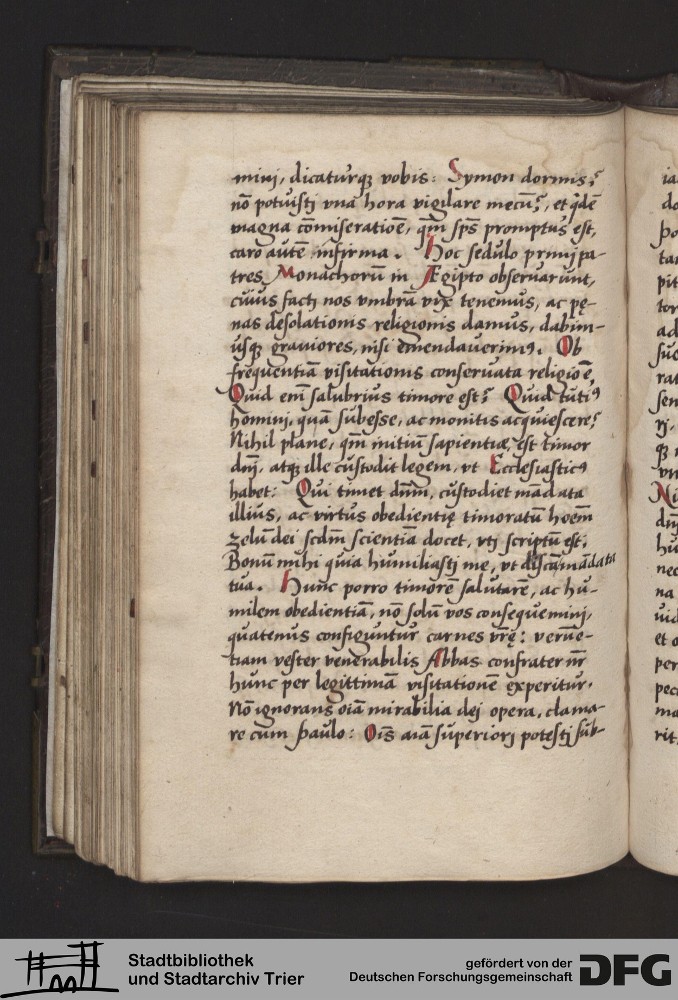 minj, dicaturqꝫ vobis: Symon dormis?
nō potuistj vna hora vigilare mecū?, et qͥdē
magna cōmiseratiōe, qm̄ sp̄s promptus est,
caro autē infirma. Hoc sedulo primj pa-
tres Monachorū in Ægipto obseruarunt,
cuius factj nos vmbrā vix tenemus, ac pę-
nas desolationis religionis damus, dabim-
usqꝫ grauiores, nisi emendauerimꝰ. Ob
frequentiā visitationis conseruata religiōe,
Quid em̄ salubrius timore est? Quid tutiꝰ
hominj, quā subesse, ac monitis acquiescere?
Nihil plane, qm̄ initiū sapientiæ est timor
dnj̄, atqꝫ ille custodit legem, vt Ecclesiasticꝰ
habet: Qui timet dn̄m, custodiet mādata
illius, ac virtus obedientię timoratū hoēm
zelū dei scdm̄ scientiā docet, vtj scriptū est:
Bonū mihi quia humiliastj me, vt discā mādata
tua. Hunc porro timorē salutarē, ac hu-
milem obedientiā, nō solū vos consequeminj,
quatenus configuntur carnes vr̄ę: verūe-
tiam vester venerabilis Abbas confrater nr̄
hunc per legittimā visitationē experitur.
Nō ignorans oīa mirabilia dej opera, clama-
re cum Paulo: Oīs aīa superiorj potestj sub-
ia
do
ta
pit
tor
ad
sue
rat
sen
rj.
qꝫ
vn
Ni
hu
nec
na
uid
et o
per
pec
ma
rit
Stadtbibliothek
und Stadtarchiv Trier
gefördert von der
Deutschen Forschungsgemeinschaft
DFG